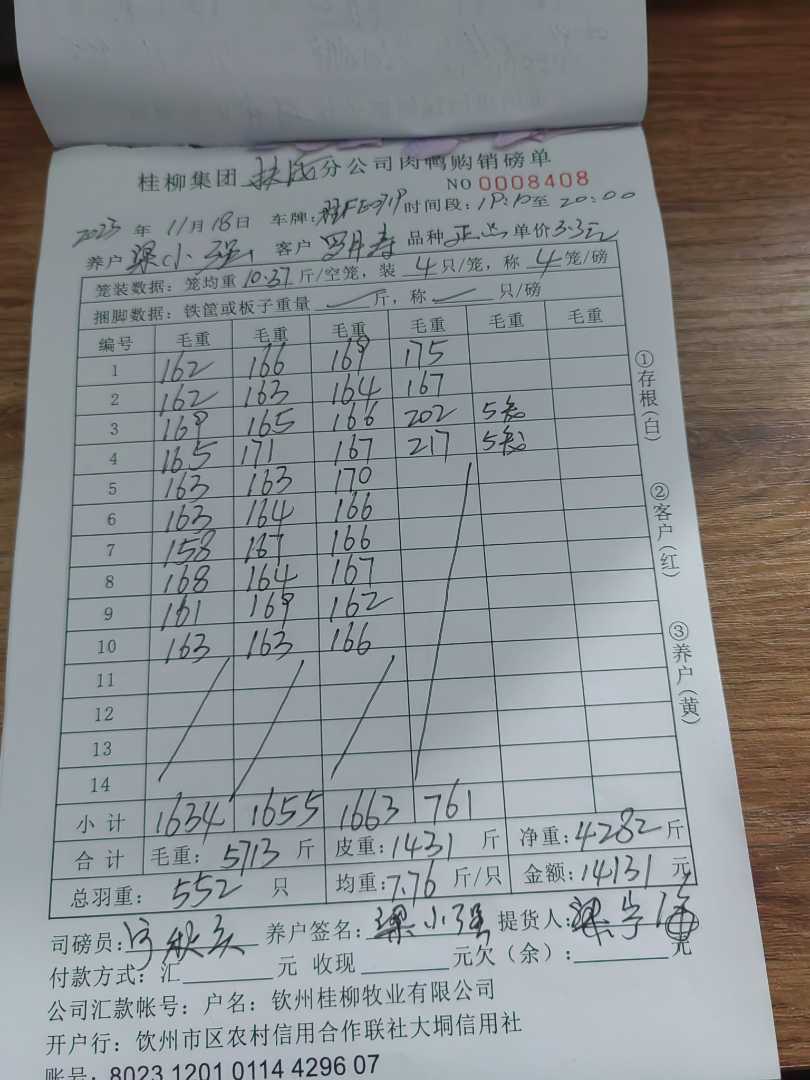 桂柳集团 扶成 分公司肉鸭购销磅单
NO 0008408
2023 年 11月18日 车牌: 时间段: 至 20:00
养户 梁小强 客户 罗月寿 品种 正 单价3.3元
笼装数据: 笼均重10.37斤/空笼, 装 4 只/笼, 称 4 笼/磅
捆脚数据: 铁筐或板子重量 斤, 称 只/磅
编号 毛重 毛重 毛重 毛重 毛重 毛重
1 162 166 169 175
2 162 163 164 167
3 169 165 166 202 5
4 165 171 167 217 5
5 163 163 170
6 163 164 166
7 158 167 166
8 168 164 167
9 161 169 162
10 163 163 166
11
12
13
14
小计 1634 1655 1663 761
合计 毛重: 5713 斤 皮重: 1431 斤 净重: 4282 斤
总羽重: 552 只 均重: 7.76 斤/只 金额: 14131 元
司磅员: 养户签名: 梁小强 提货人:
付款方式: 汇 元 收现 元欠(余): 元
公司汇款帐号: 户名: 钦州桂柳牧业有限公司
开户行: 钦州市区农村信用合作联社大垌信用社
账号: 8023 1201 0114 4296 07
①存根(白)
②客户(红)
③养户(黄)